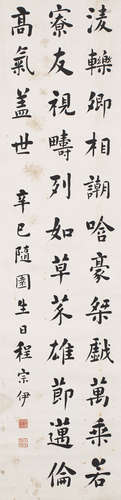 淩轢卿相謿哈豪桀戲萬乘若
寮友視疇列如草芥雄節邁倫
高氣蓋世 辛巳隨園生日程宗伊